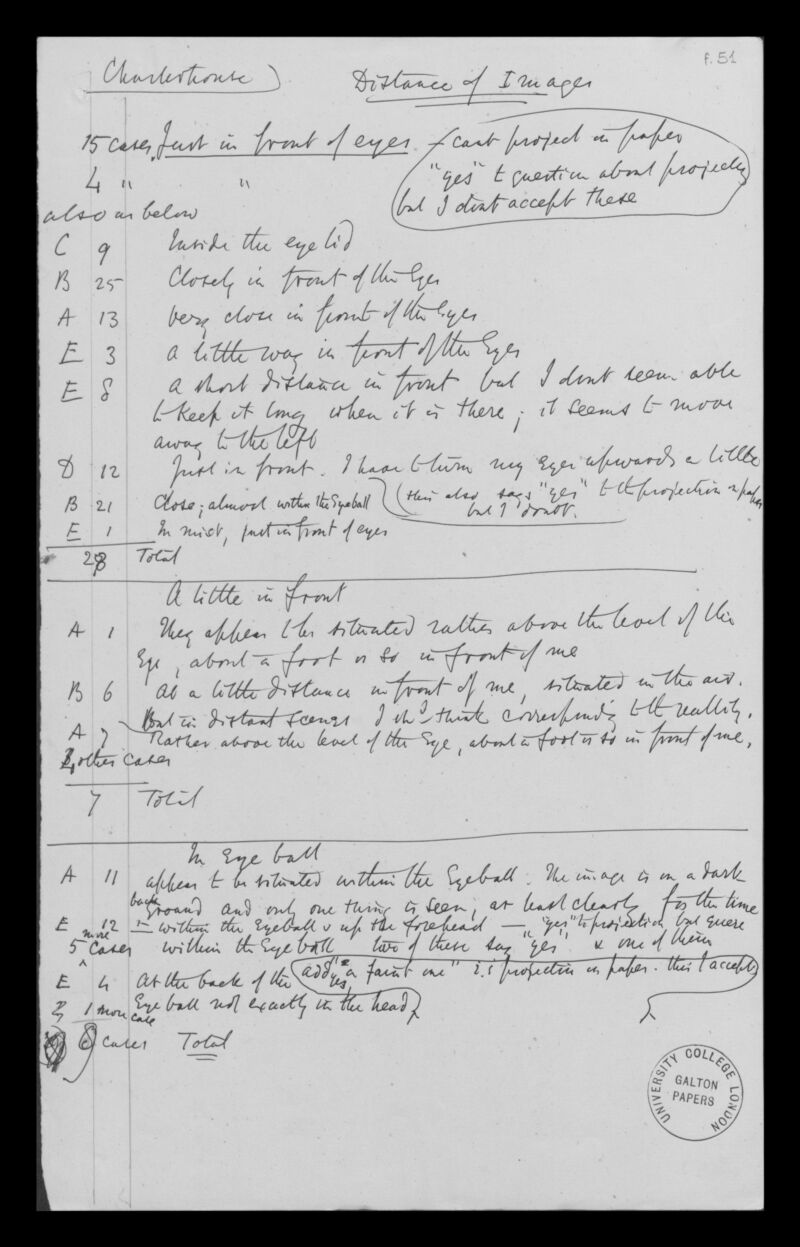 f. 51
Charterhouse
Distance of Images
15 cases Just in front of eyes – cant project on paper
4 " " "yes" to question about projecting
but I dont accept these
also as below
C 9 Inside the eye lid
B 25 Closely in front of the Eyes
A 13 very close in front of the Eyes
E 3 a little way in front of the Eyes
E 8 a short distance in front but I dont seem able
to keep it long when it is there; it seems to move
away to the left
D 12 Just in front. I have to turn my eyes upwards a little
B 21 Close; almost within the Eyeball (this also says "yes" to the projection on paper
but I doubt.
E 1 In mist, just in front of eyes
28 Total
A little in front
A 1 They appear to be situated rather above the level of the
Eye, about a foot or so in front of me
B 6 At a little distance in front of me, situated in the air.
But in distant scenes I shd think corresponding to the reality.
A 7 Rather above the level of the Eye, about a foot or so in front of me.
4 other cases
7 Total
In Eye ball
A 11 appear to be situated within the Eyeball. The image is on a dark
back ground and only one thing is seen, at least clearly for the time
E 12 within the Eyeball & up the forehead — "yes" to projection but quere
5 more cases within the Eye ball two of these say "yes" & one of them
adds "yes, a faint one" i.e. projection on paper. this I accept
E 4 At the back of the
Eye ball not exactly in the head
1 more case
8 cases Total
UNIVERSITY COLLEGE LONDON
GALTON
PAPERS